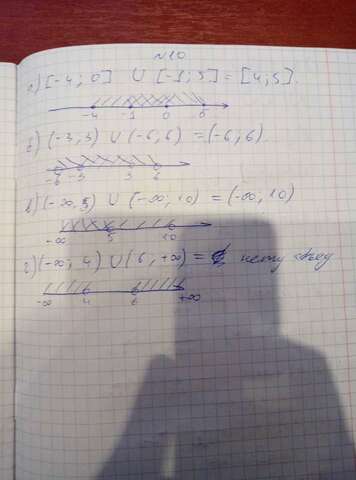 №10
а) [-4; 0] ∪ [-1; 5] = [4; 5].
-4 -1 0 5
б) (-3, 3) ∪ (-6, 6) = (-6, 6)
-6 -3 3 6
в) (-∞, 5) ∪ (-∞, 10) = (-∞, 10)
-∞ 5 10
г) (-∞; 4) ∪ (6, +∞) = нету
-∞ 4 6 +∞